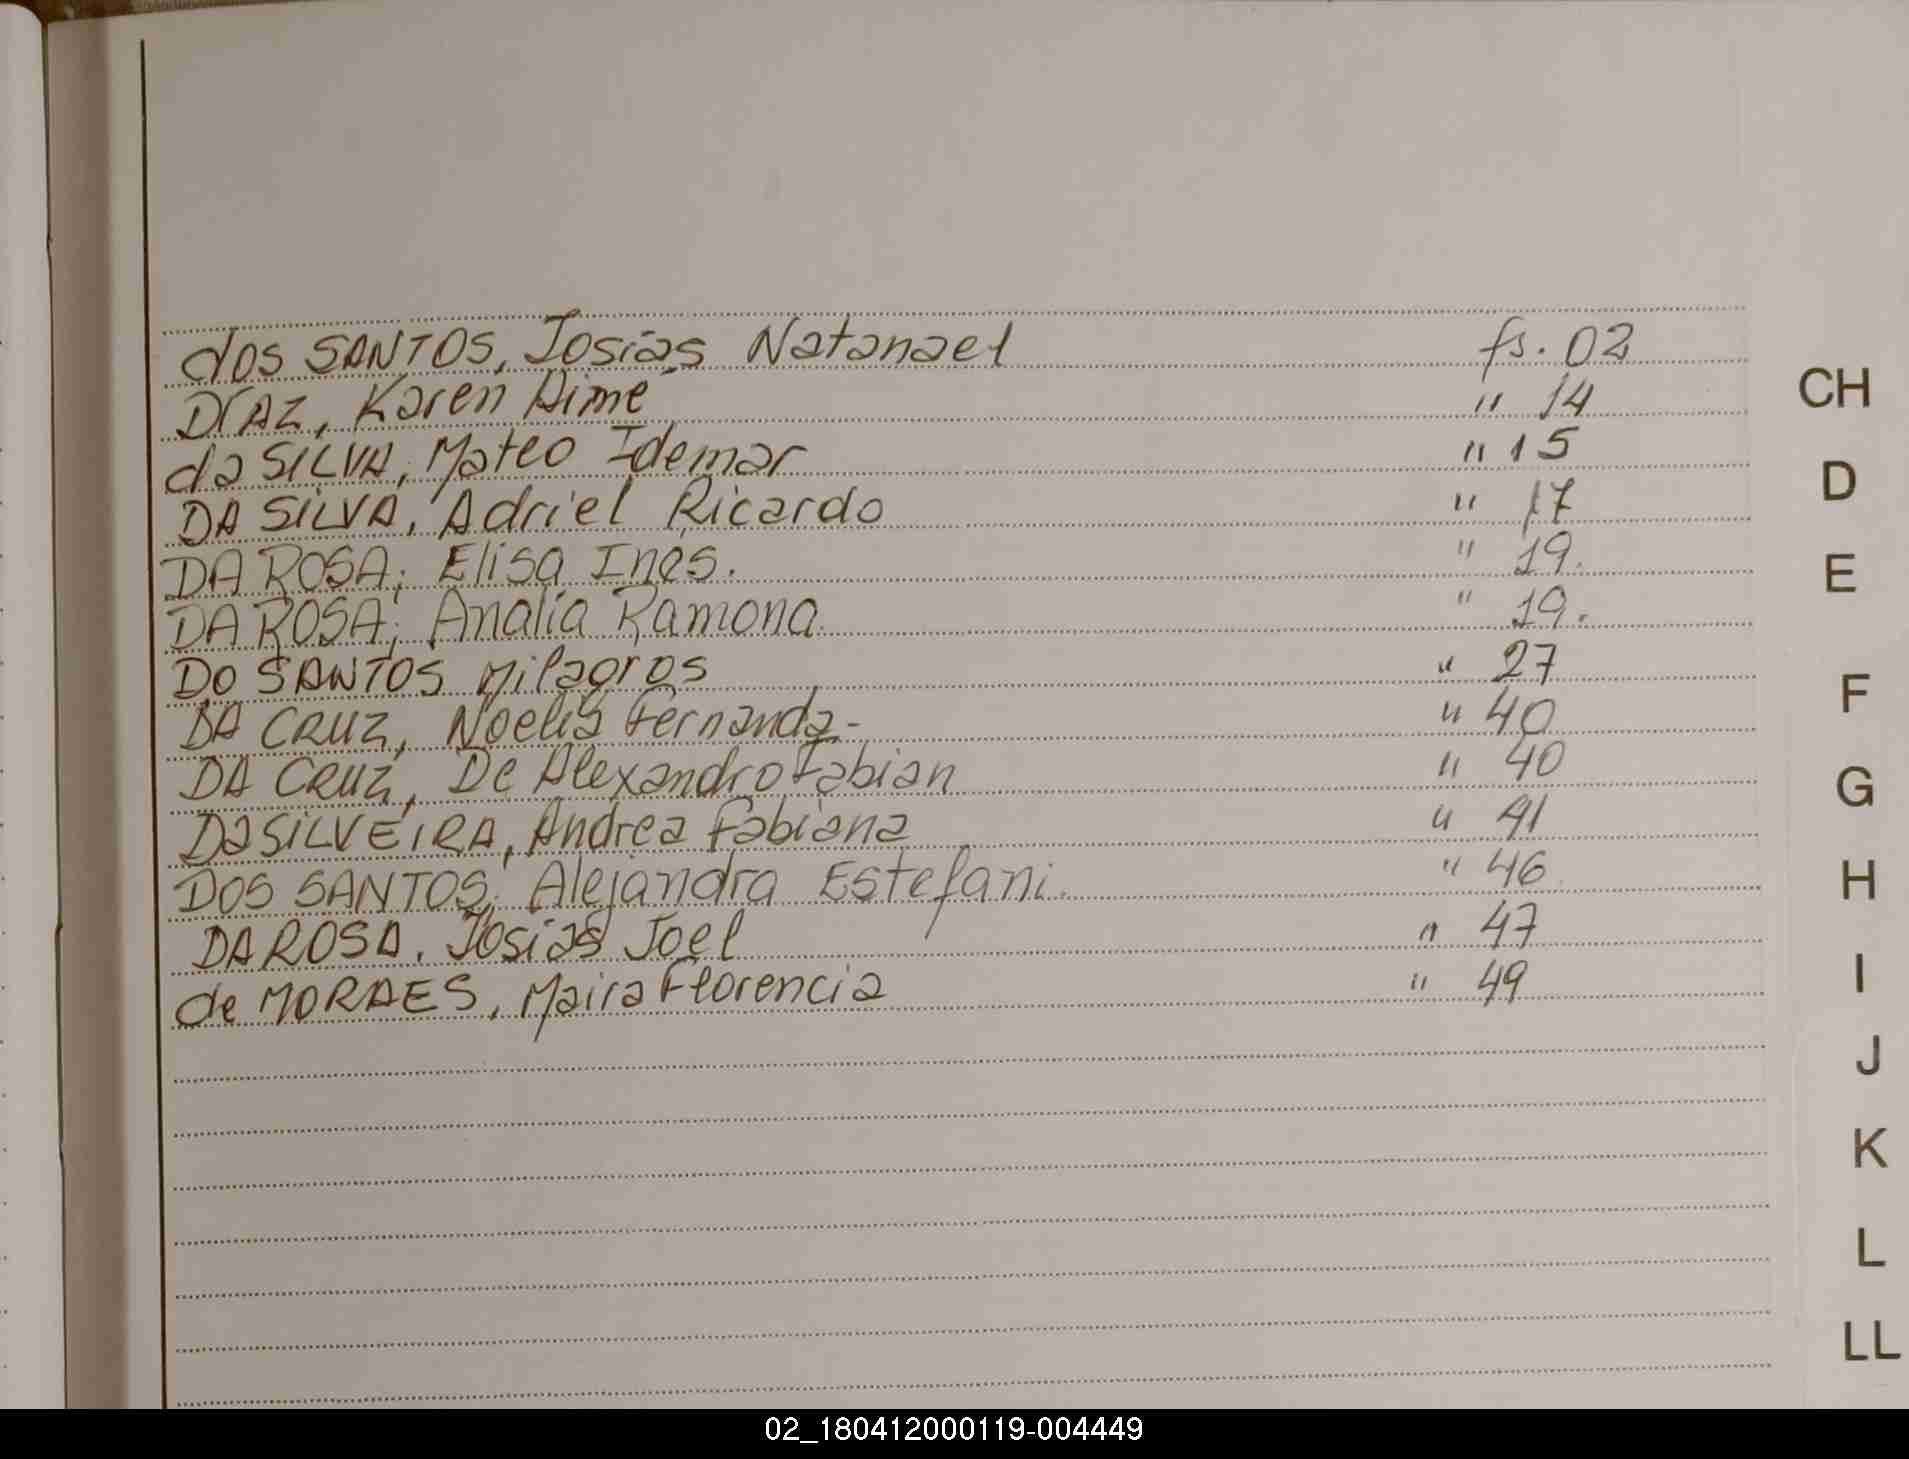 dos SANTOS, Josías Natanael fs. 02
DÍAZ, Karen Aimé " 14
da SILVA, Mateo Idemar " 15
DA SILVA, Adriel Ricardo " 17
DA ROSA; Elisa Ines. " 19.
DA ROSA; Analia Ramona " 19.
DO SANTOS Milagros " 27
DA CRUZ, Noelia Fernanda- " 40
DA CRUZ, De Alexandro Fabian " 40
Da SILVEIRA, Andrea Fabiana " 41
DOS SANTOS; Alejandra Estefani. " 46
DA ROSA, Josias Joel " 47
de MORAES, Maira Florencia " 49
CH
D
E
F
G
H
I
J
K
L
LL
02_180412000119-004449